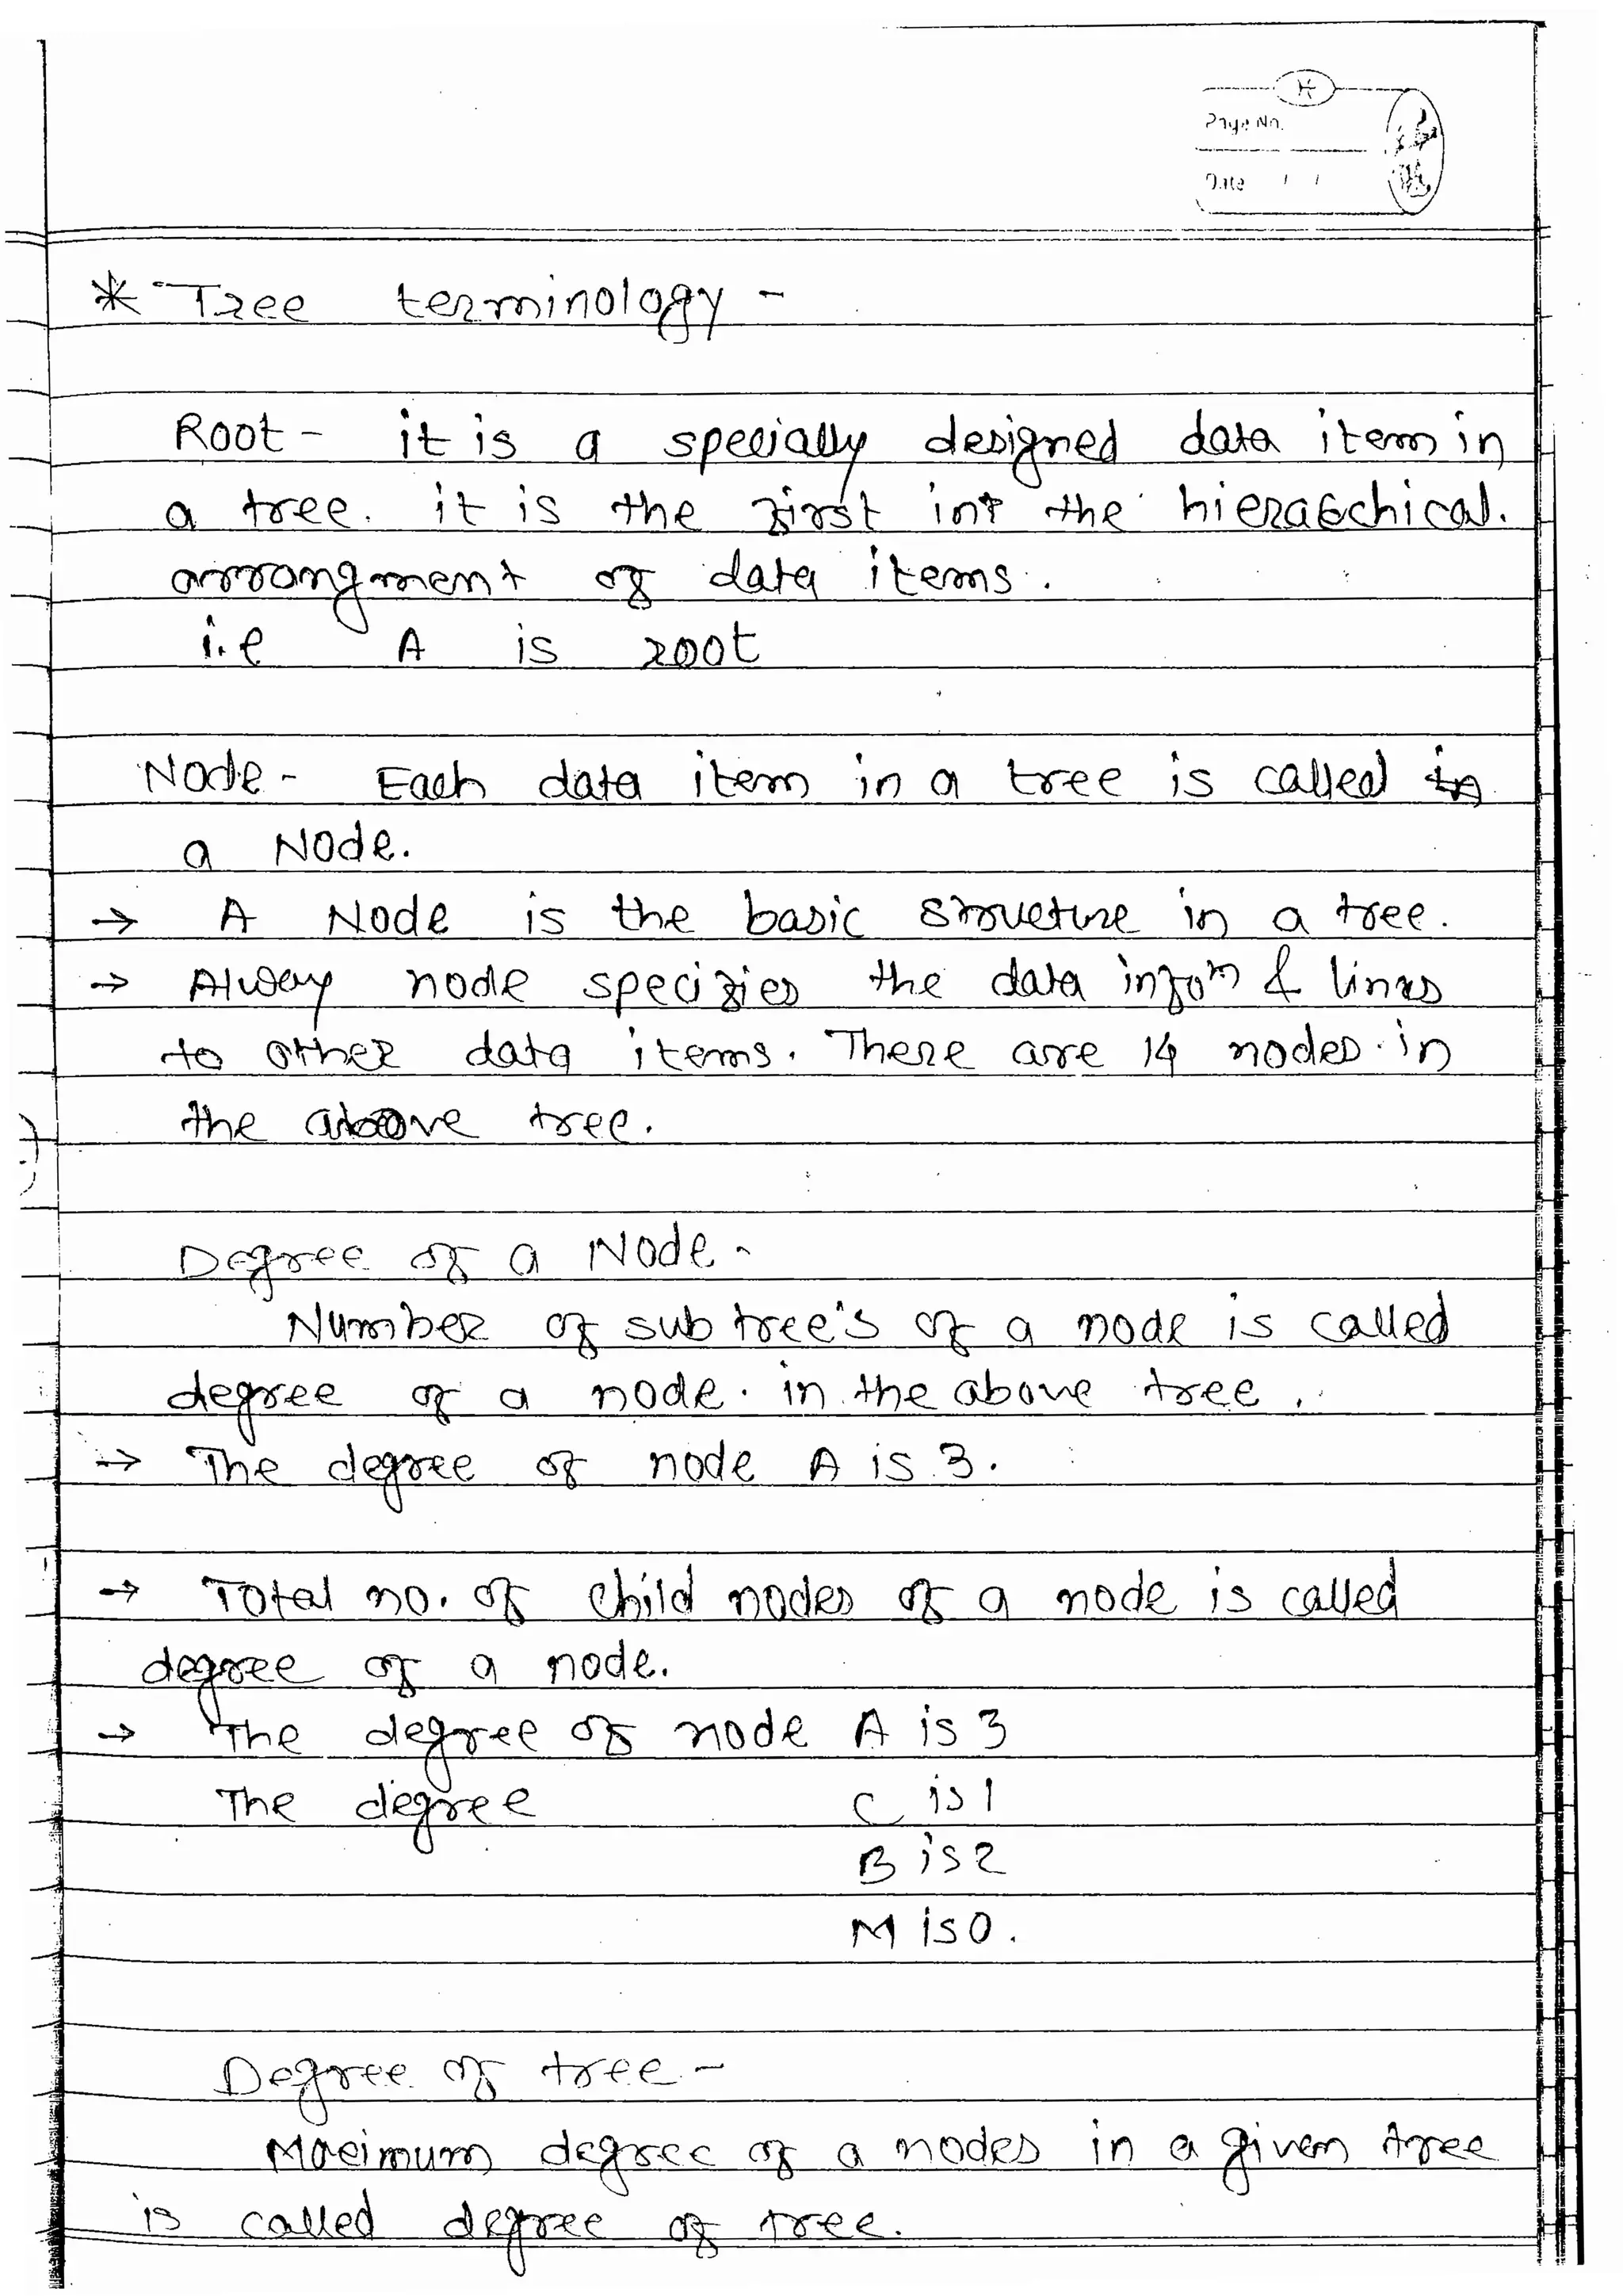 Page No.
Date / /
* Tree terminology -
Root - it is a specially designed data item in
a tree. it is the first in the hierarchical.
arrangment of data items.
i.e A is root
Node - Each data item in a tree is called
a Node.
→ A Node is the basic structure in a tree.
→ Alway node specifies the data infoⁿ & links
to other data items. There are 14 nodes in
the above tree.
Degree of a Node -
Number of sub tree's of a node is called
degree of a node. in the above tree.
→ The degree of node A is 3.
→ Total no. of child nodes of a node is called
degree of a node.
→ The degree of node A is 3
The degree C is 1
B is 2
M is 0.
Degree of tree -
Maximum degree of a nodes in a given tree
is called degree of tree.